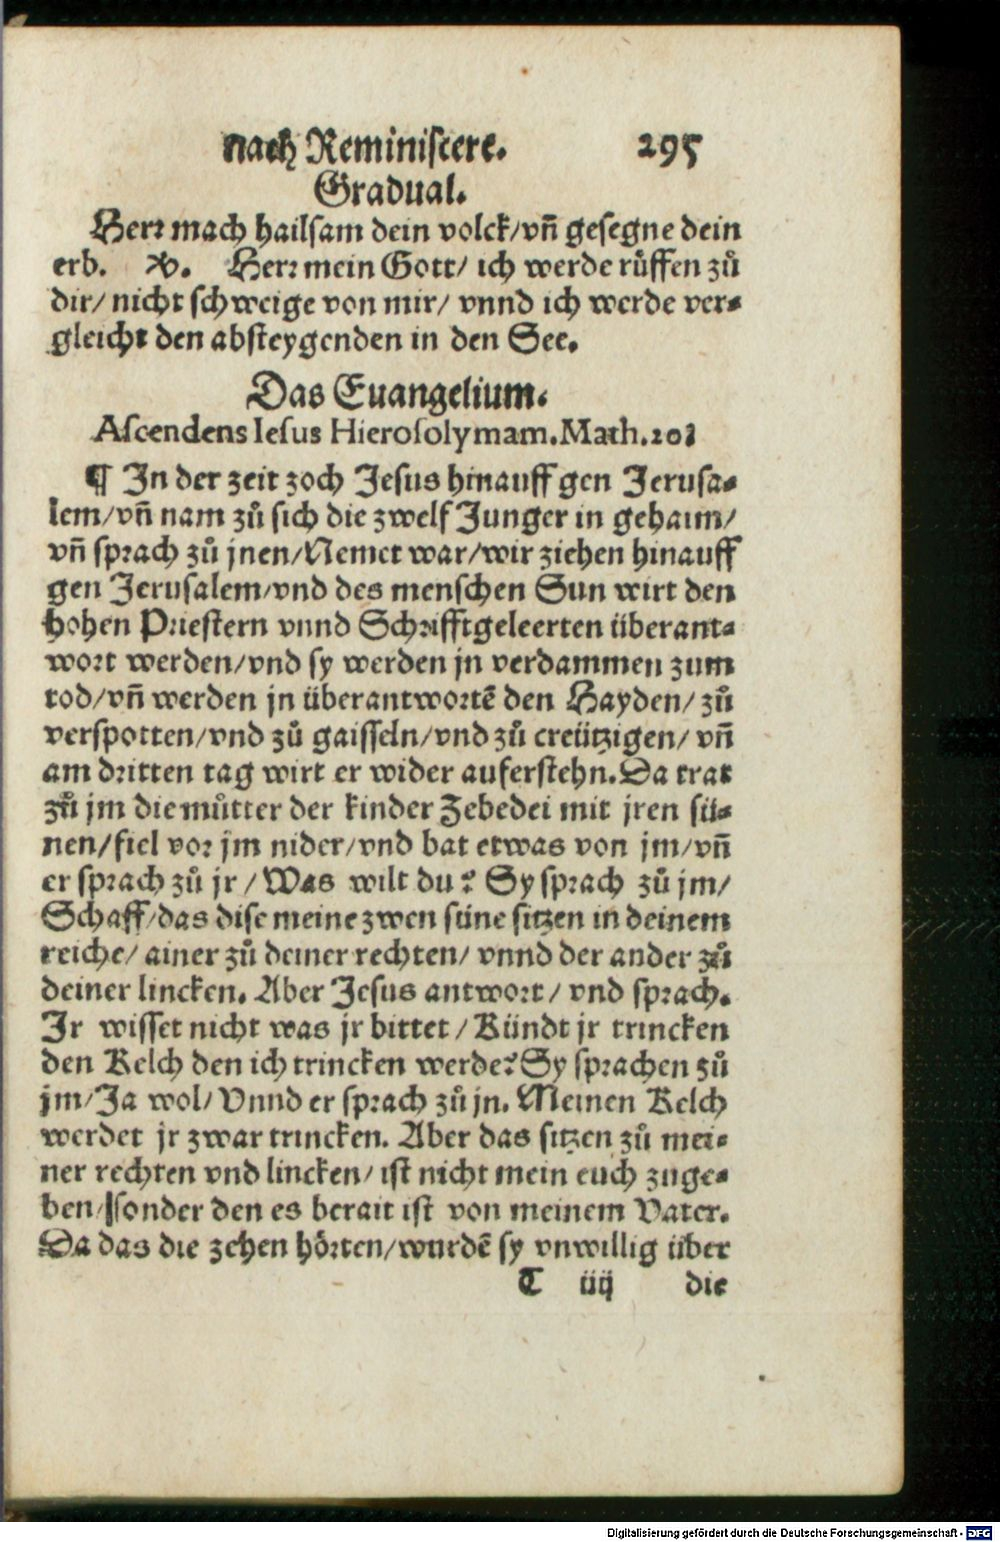 nach Reminiscere. 295
Gradual.
Herr mach hailsam dein volck/vñ gesegne dein
erb. V. Herr mein Gott/ ich werde růffen zů
dir/ nicht schweige von mir/ vnnd ich werde ver-
gleicht den absteygenden in den See.
Das Euangelium.
Ascendens Iesus Hierosolymam. Math. 20.
¶ In der zeit zoch Jesus hinauff gen Jerusa-
lem/vñ nam zů sich die zwelf Junger in gehaim/
vñ sprach zů jnen/Nemet war/wir ziehen hinauff
gen Jerusalem/vnd des menschen Sun wirt den
hohen Priestern vnnd Schrifftgeleerten überant-
wort werden/vnd sy werden jn verdammen zum
tod/vñ werden jn überantwortẽ den Hayden/ zů
verspotten/vnd zů gaisseln/vnd zů creützigen/ vñ
am dritten tag wirt er wider auferstehn. Da trat
zů jm die můtter der kinder Zebedei mit jren sü-
nen/fiel vor jm nider/vnd bat etwas von jm/vñ
er sprach zů jr / Was wilt du? Sy sprach zů jm/
Schaff/das dise meine zwen süne sitzen in deinem
reiche/ ainer zů deiner rechten/ vnnd der ander zů
deiner lincken. Aber Jesus antwort/ vnd sprach.
Ir wisset nicht was jr bittet / Kündt jr trincken
den Kelch den ich trincken werde? Sy sprachen zů
jm/Ja wol/ Vnnd er sprach zů jn. Meinen Kelch
werdet jr zwar trincken. Aber das sitzen zů mei-
ner rechten vnd lincken/ ist nicht mein euch zuge-
ben/sonder den es berait ist von meinem Vater.
Da das die zehen hörten/wurdẽ sy vnwillig über
T iiij die
Digitalisierung gefördert durch die Deutsche Forschungsgemeinschaft - DFG